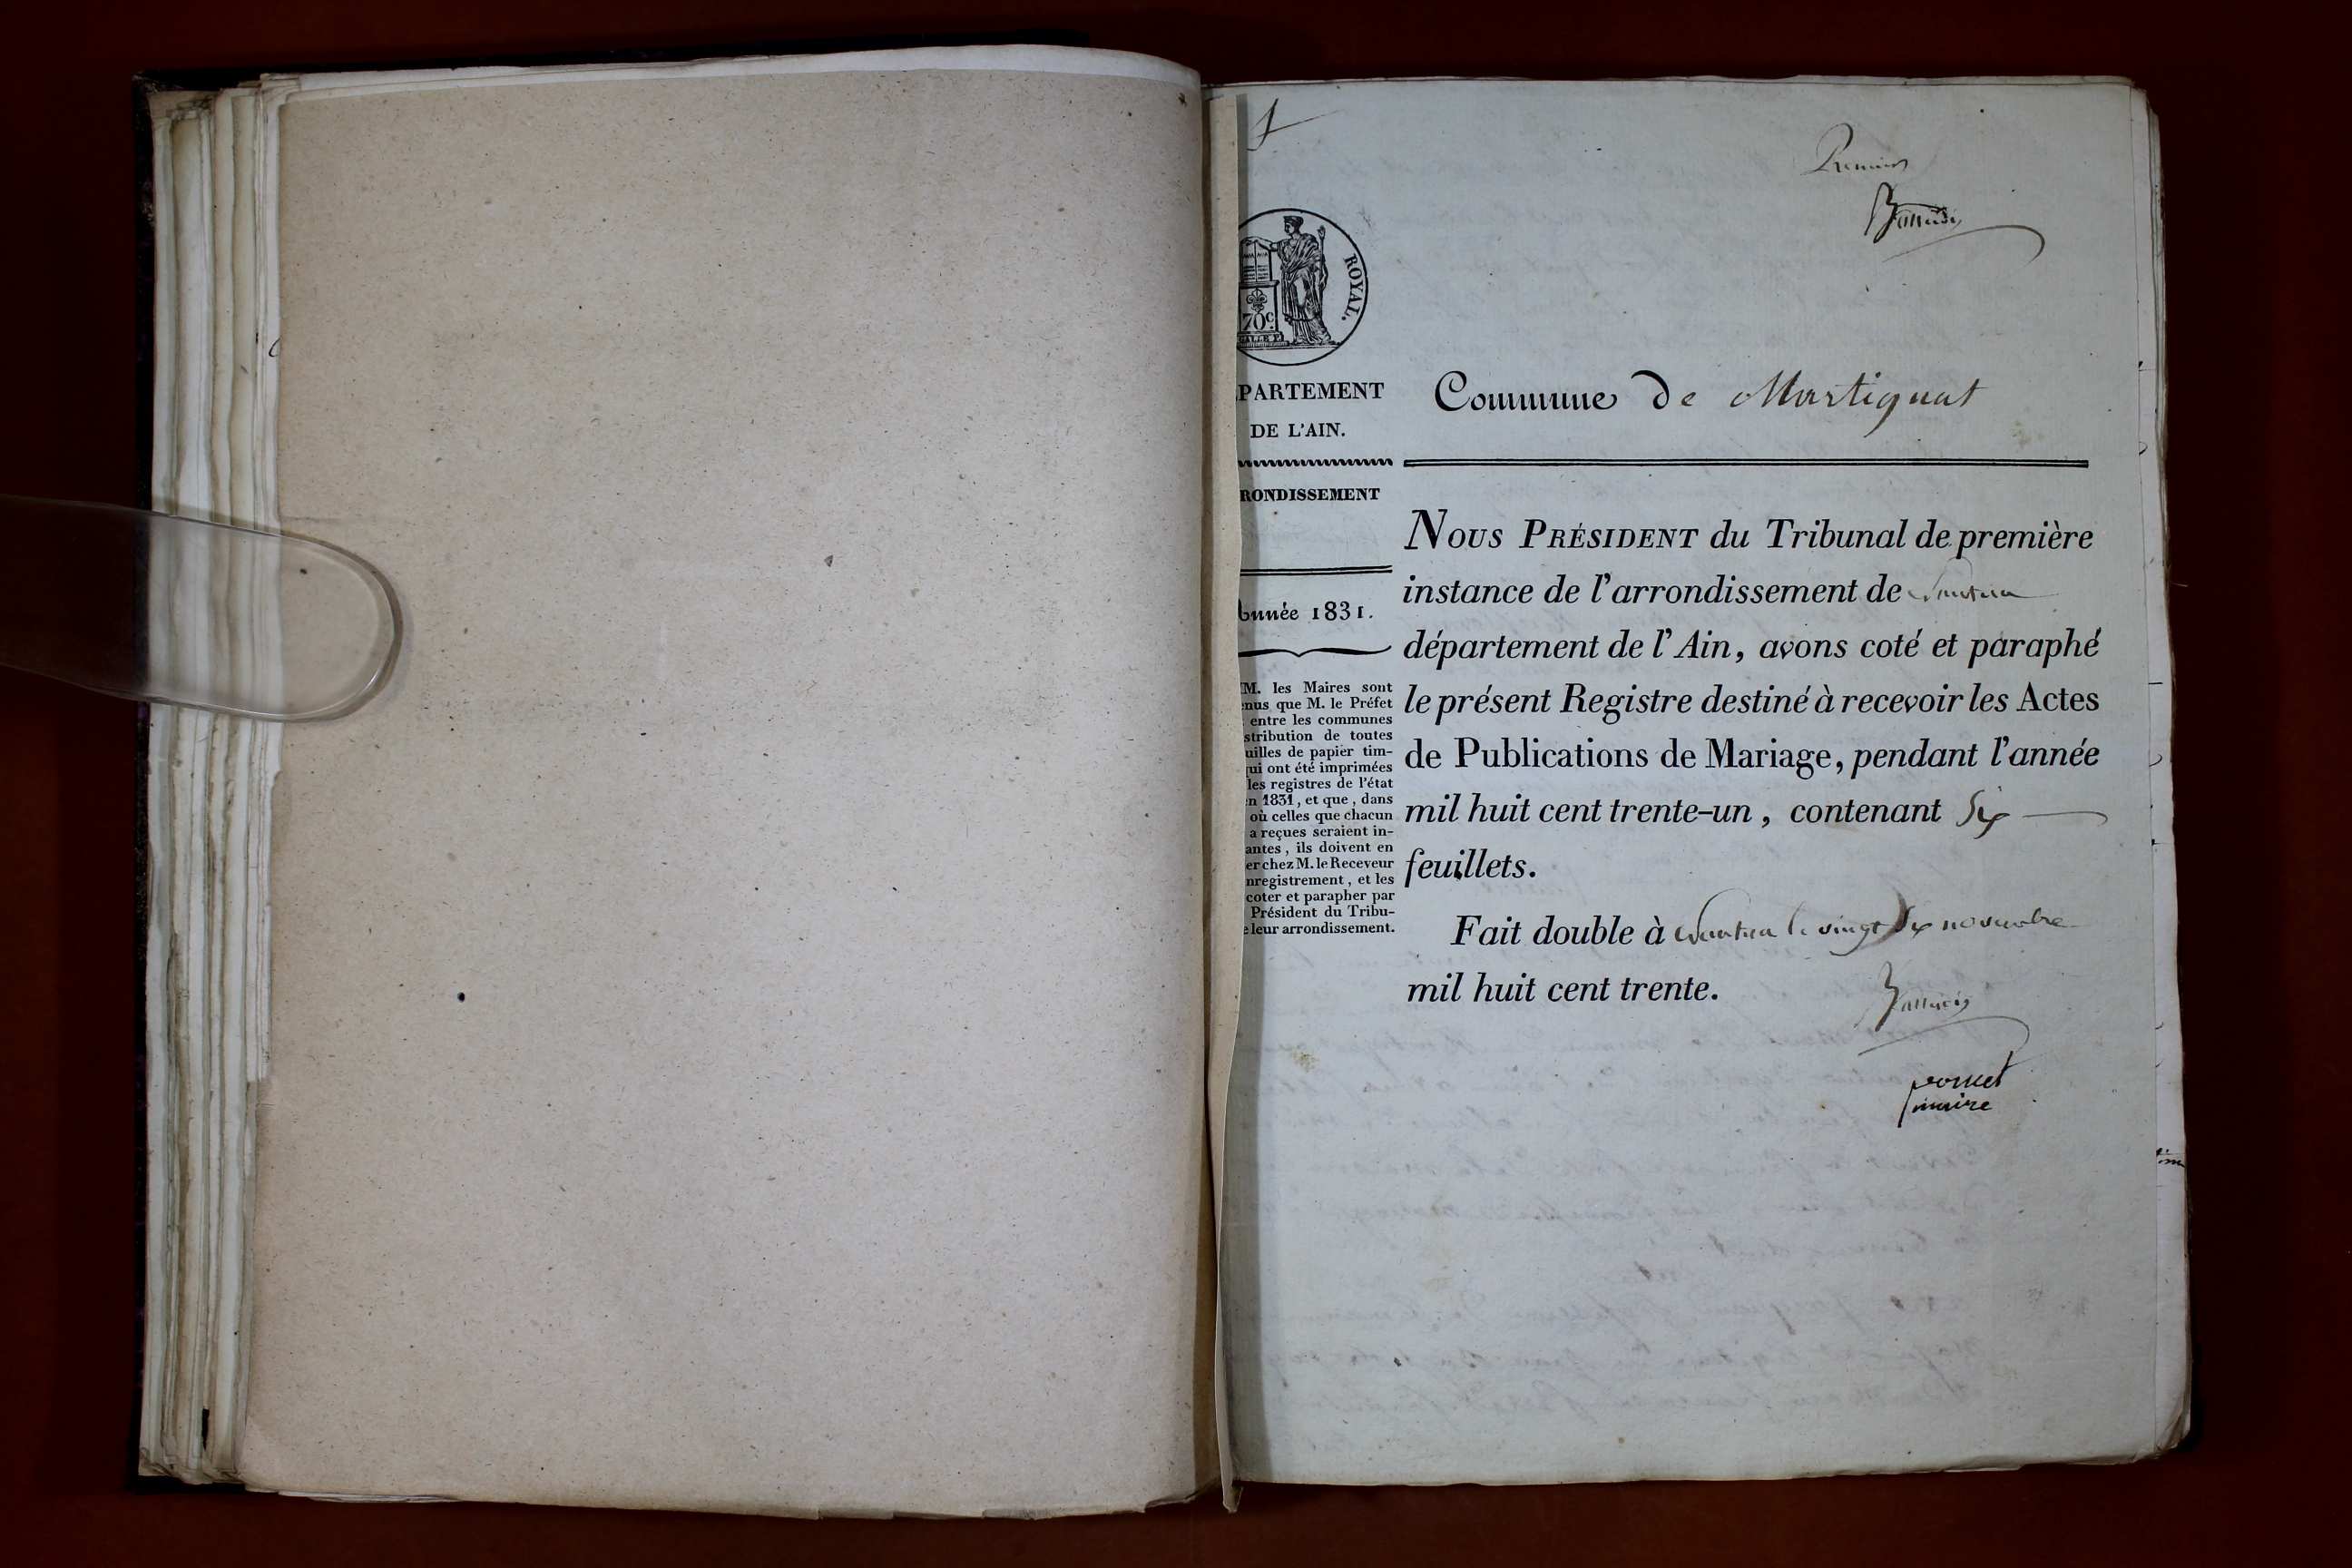 1
Premier
ROYAL.
70c.
PARTEMENT
DE L'AIN.
Commune de Martignat
RONDISSEMENT
Année 1831.
M. les Maires sont
nus que M. le Préfet
entre les communes
stribution de toutes
uilles de papier tim-
ui ont été imprimées
les registres de l'état
n 1831, et que, dans
où celles que chacun
a reçues seraient in-
antes, ils doivent en
er chez M. le Receveur
nregistrement, et les
coter et parapher par
Président du Tribu-
e leur arrondissement.
NOUS PRÉSIDENT du Tribunal de première
instance de l'arrondissement de Nantua
département de l'Ain, avons coté et paraphé
le présent Registre destiné à recevoir les Actes
de Publications de Mariage, pendant l'année
mil huit cent trente-un, contenant Six
feuillets.
Fait double à Nantua le vingt Six novembre
mil huit cent trente.
maire